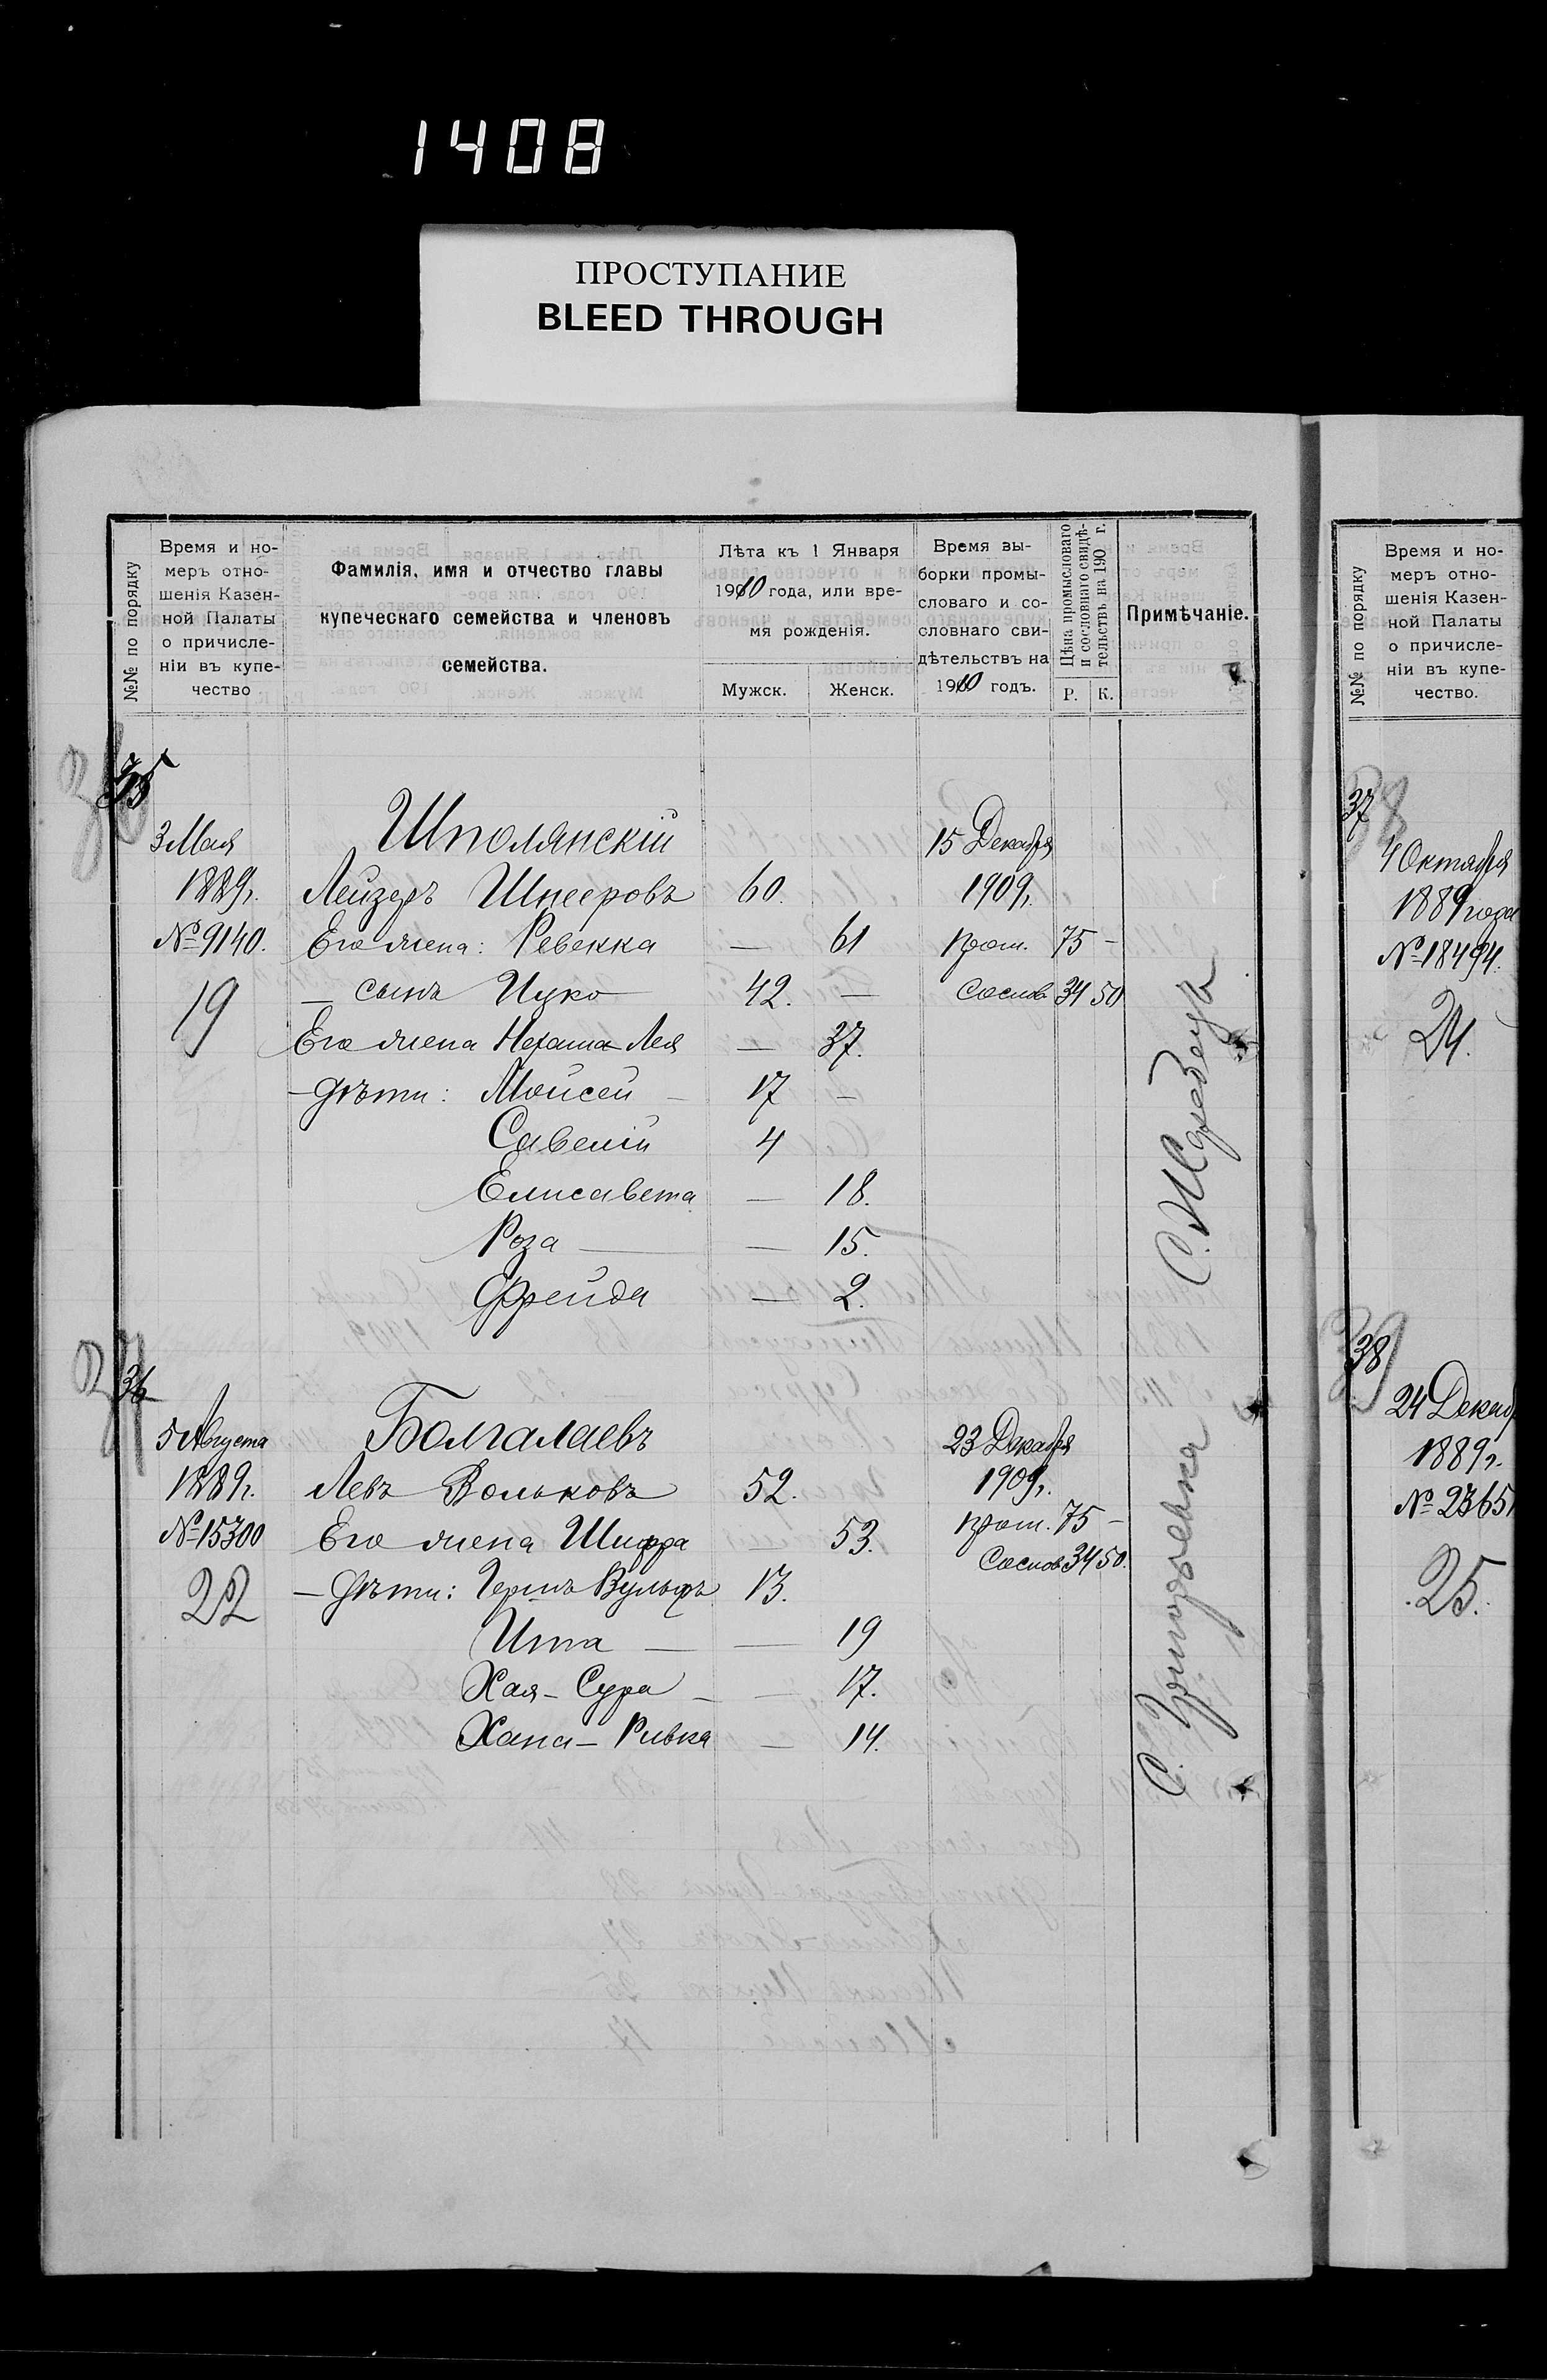 1408
ПРОСТУПАНИЕ
BLEED THROUGH
№№ по порядку
Время и но-
меръ отно-
шенія Казен-
ной Палаты
о причисле-
ніи въ купе-
чество
Фамилія, имя и отчество главы
купеческаго семейства и членовъ
семейства.
Лѣта къ 1 Января
1910 года, или вре-
мя рожденія.
Мужск. Женск.
Время вы-
борки промы-
словаго и со-
словнаго сви-
дѣтельствъ на
1910 годъ.
Цѣна промысловаго
и сословнаго свидѣ-
тельствъ на 190 г.
Р. К.
Примѣчаніе.
35
3 Мая Шполянскій 15 Декабря
1889г. Лейзеръ Шнееровъ 60. 1909г.
№ 9140. Его жена: Ревекка — 61 пром. 75 —
19 — сынъ Ицко 42. — Сослов 34 50
Его жена Нехама Лея — 37.
— дѣти: Мойсей — 17 —
Савелій 4
Елисавета — 18.
Роза — — 15.
Фрейда — 2.
36
5 Августа Болгалаевъ 23 Декабря
1889г. Левъ Вольковъ 52. 1909г.
№ 15300 Его жена Шифра 53. пром. 75 —
Сослов 34 50.
22 — дѣти: Гершъ Вульфъ 13.
Ита — — 19
Хая - Сура — — 17.
Хана - Ривка — 14.
№№ по порядку
Время и но-
меръ отно-
шенія Казен-
ной Палаты
о причисле-
ніи въ купе-
чество.
37
4 Октября
1889 года
№ 18494.
24.
38
24 Декаб
1889г.
№ 2365
25.